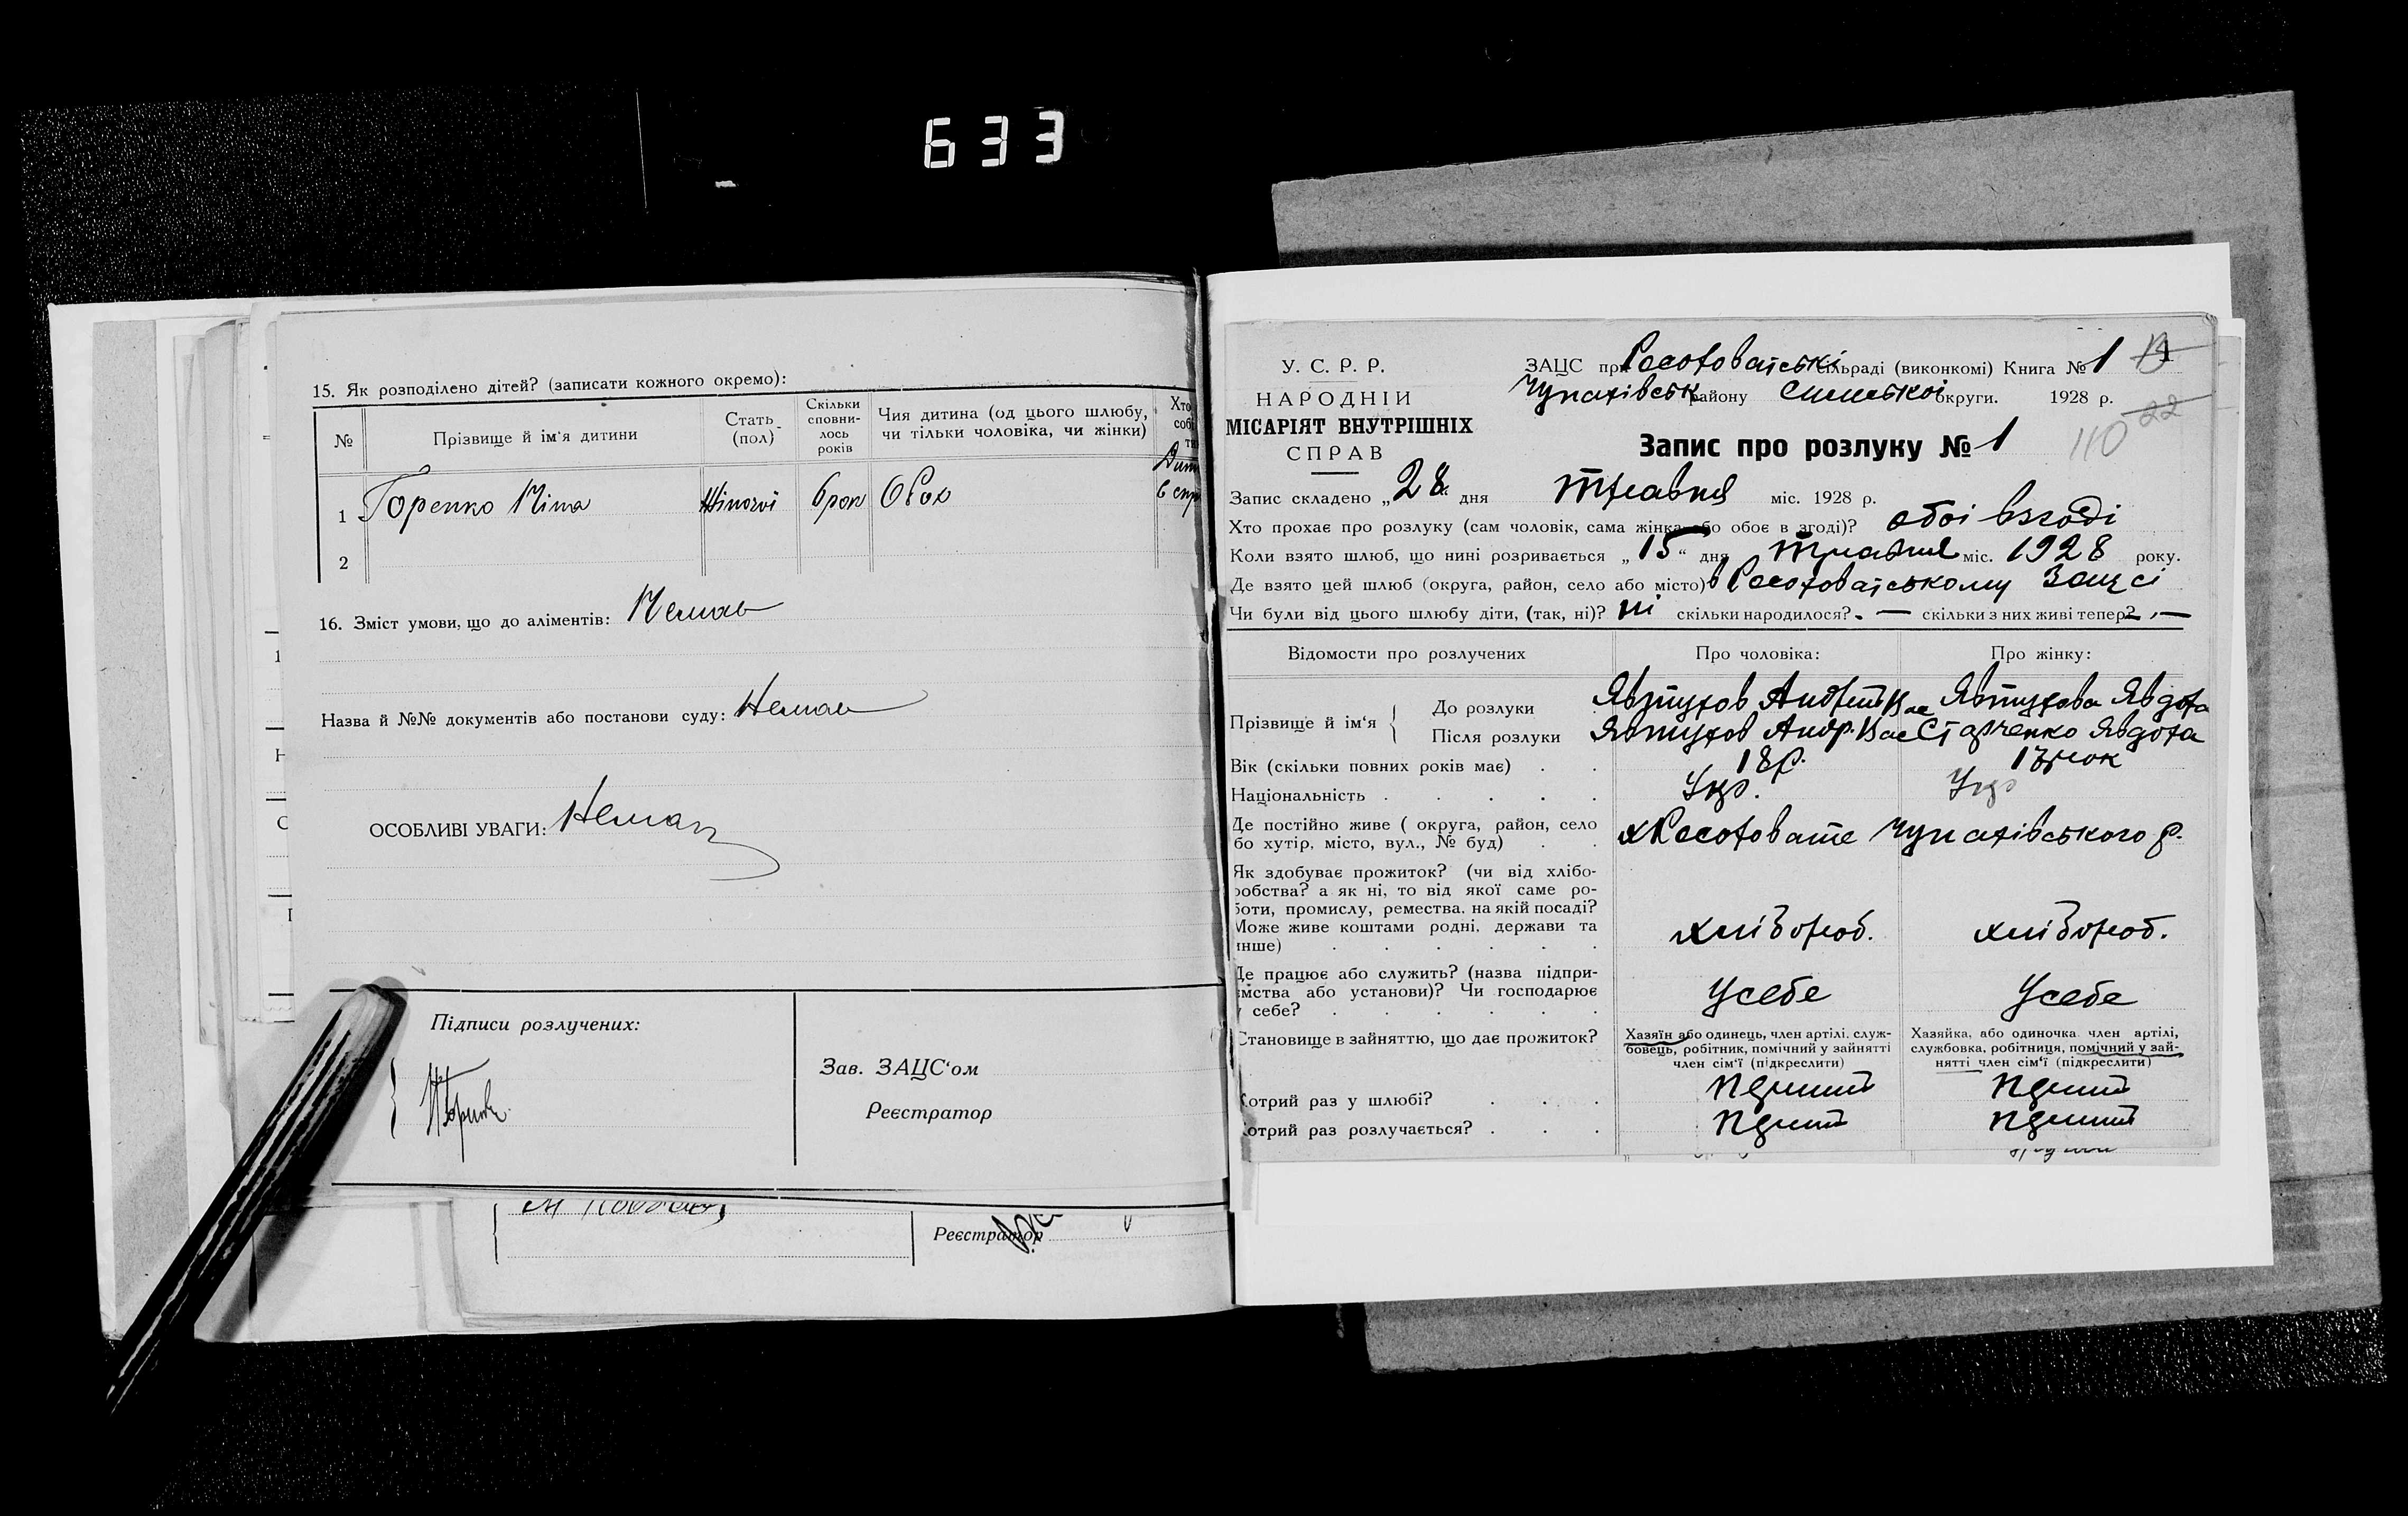 633
15. Як розподілено дітей? (записати кожного окремо):
№
Прізвище й ім'я дитини
Стать (пол)
Скільки сповни-
лось
років
Чия дитина (од цього шлюбу,
чи тільки чоловіка, чи жінки)
Хто
1 Горенко Ніна Жіночої 6 рок Обох
2
16. Зміст умови, що до аліментів: Немає
Назва й №№ документів або постанови суду: Немає
ОСОБЛИВІ УВАГИ: Немає
Підписи розлучених:
Зав. ЗАЦС'ом
Реєстратор
Реєстратор
У. С. Р. Р.
НАРОДНІЙ
МІСАРІЯТ ВНУТРІШНІХ
СПРАВ
ЗАЦС при сільраді (виконкомі) Книга № 1
Чупахівськ району Сумської округи. 1928 р.
22
110
Запис про розлуку № 1
Запис складено „28“ дня травня міс. 1928 р.
Хто прохає про розлуку (сам чоловік, сама жінка або обоє в згоді)? обоі взгоді
Коли взято шлюб, що нині розривається „15“ дня травня міс. 1928 року.
Де взято цей шлюб (округа, район, село або місто) в Зацсі
Чи були від цього шлюбу діти, (так, ні)? ні скільки народилося? — скільки з них живі тепер? —
Відомости про розлучених
Про чоловіка:
Про жінку:
Прізвище й ім'я
До розлуки Явтухов Андрій Вас Явтухова Явдоха
Після розлуки Явтухов Андр. Вас Старченко Явдоха
Вік (скільки повних років має) . . 18 р. рок
Національність . . . . . Укр. Укр
Де постійно живе ( округа, район, село
бо хутір, місто, вул., № буд) . . Чупахівського р.
Як здобуває прожиток? (чи від хлібо-
робства? а як ні, то від якої саме ро-
боти, промислу, ремества, на якій посаді?
Може живе коштами родні, держави та
инше) . . . . . . хлібороб. хлібороб.
Де працює або служить? (назва підпри-
ємства або установи)? Чи господарює
у себе? . . . . . . Усебе Усебе
Становище в зайняттю, що дає прожиток?
Хазяїн або одинець, член артілі, служ-
бовець, робітник, помічний у зайнятті
член сім'ї (підкреслити)
Хазяйка, або одиночка, член артілі,
службовка, робітниця, помічний у зай-
нятті член сім'ї (підкреслити)
Котрий раз у шлюбі? . . .
Котрий раз розлучається? . . .